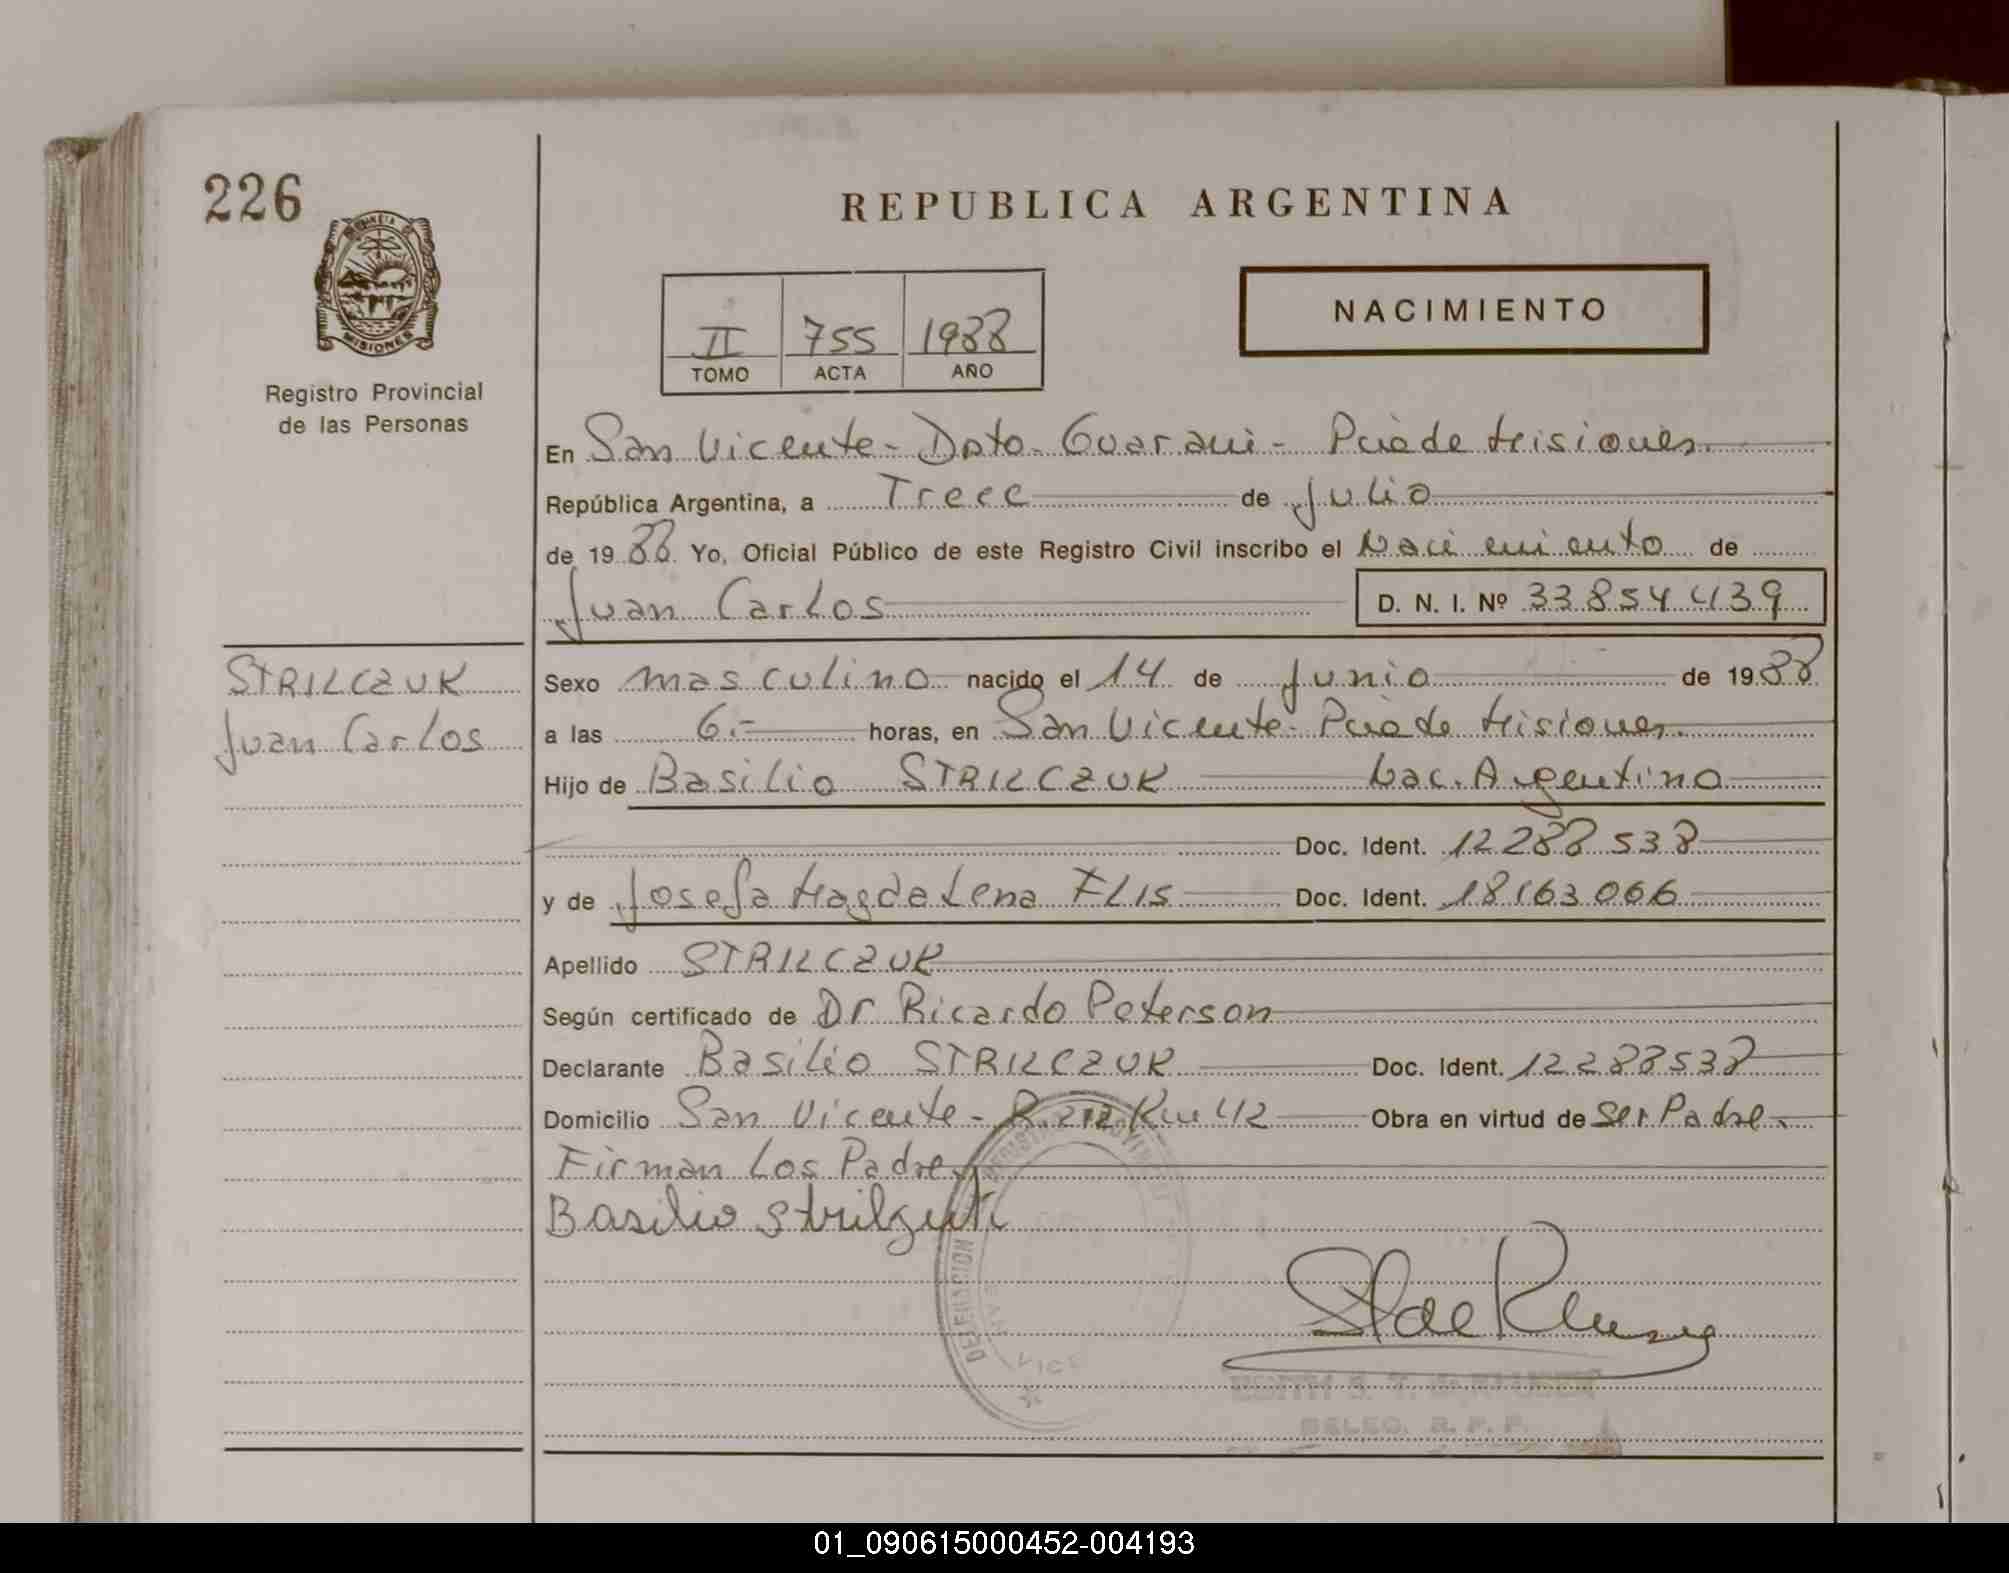 226
REPUBLICA ARGENTINA
MISIONES
Registro Provincial
de las Personas
II 755 1988
TOMO ACTA AÑO
NACIMIENTO
En San Vicente - Dpto. Guaraní - Pcia de Misiones.
República Argentina, a Trece de Julio
de 19 88. Yo, Oficial Público de este Registro Civil inscribo el Nacimiento de
Juan Carlos D. N. I. Nº 33.854.439
STRILCZUK
Juan Carlos
Sexo masculino nacido el 14 de Junio de 1988
a las 6.- horas, en San Vicente - Pcia de Misiones.
Hijo de Basilio STRILCZUK Nac. Argentino
Doc. Ident. 12.288.538
y de Josefa Magdalena FLIS Doc. Ident. 18.163.066
Apellido STRILCZUK
Según certificado de Dr Ricardo Peterson
Declarante Basilio STRILCZUK Doc. Ident. 12.288.538
Domicilio San Vicente - Km 42 Obra en virtud de Ser Padre.
Firman Los Padres
Basilio
DELEGACION
DELEG. R. P. P.
01_090615000452-004193